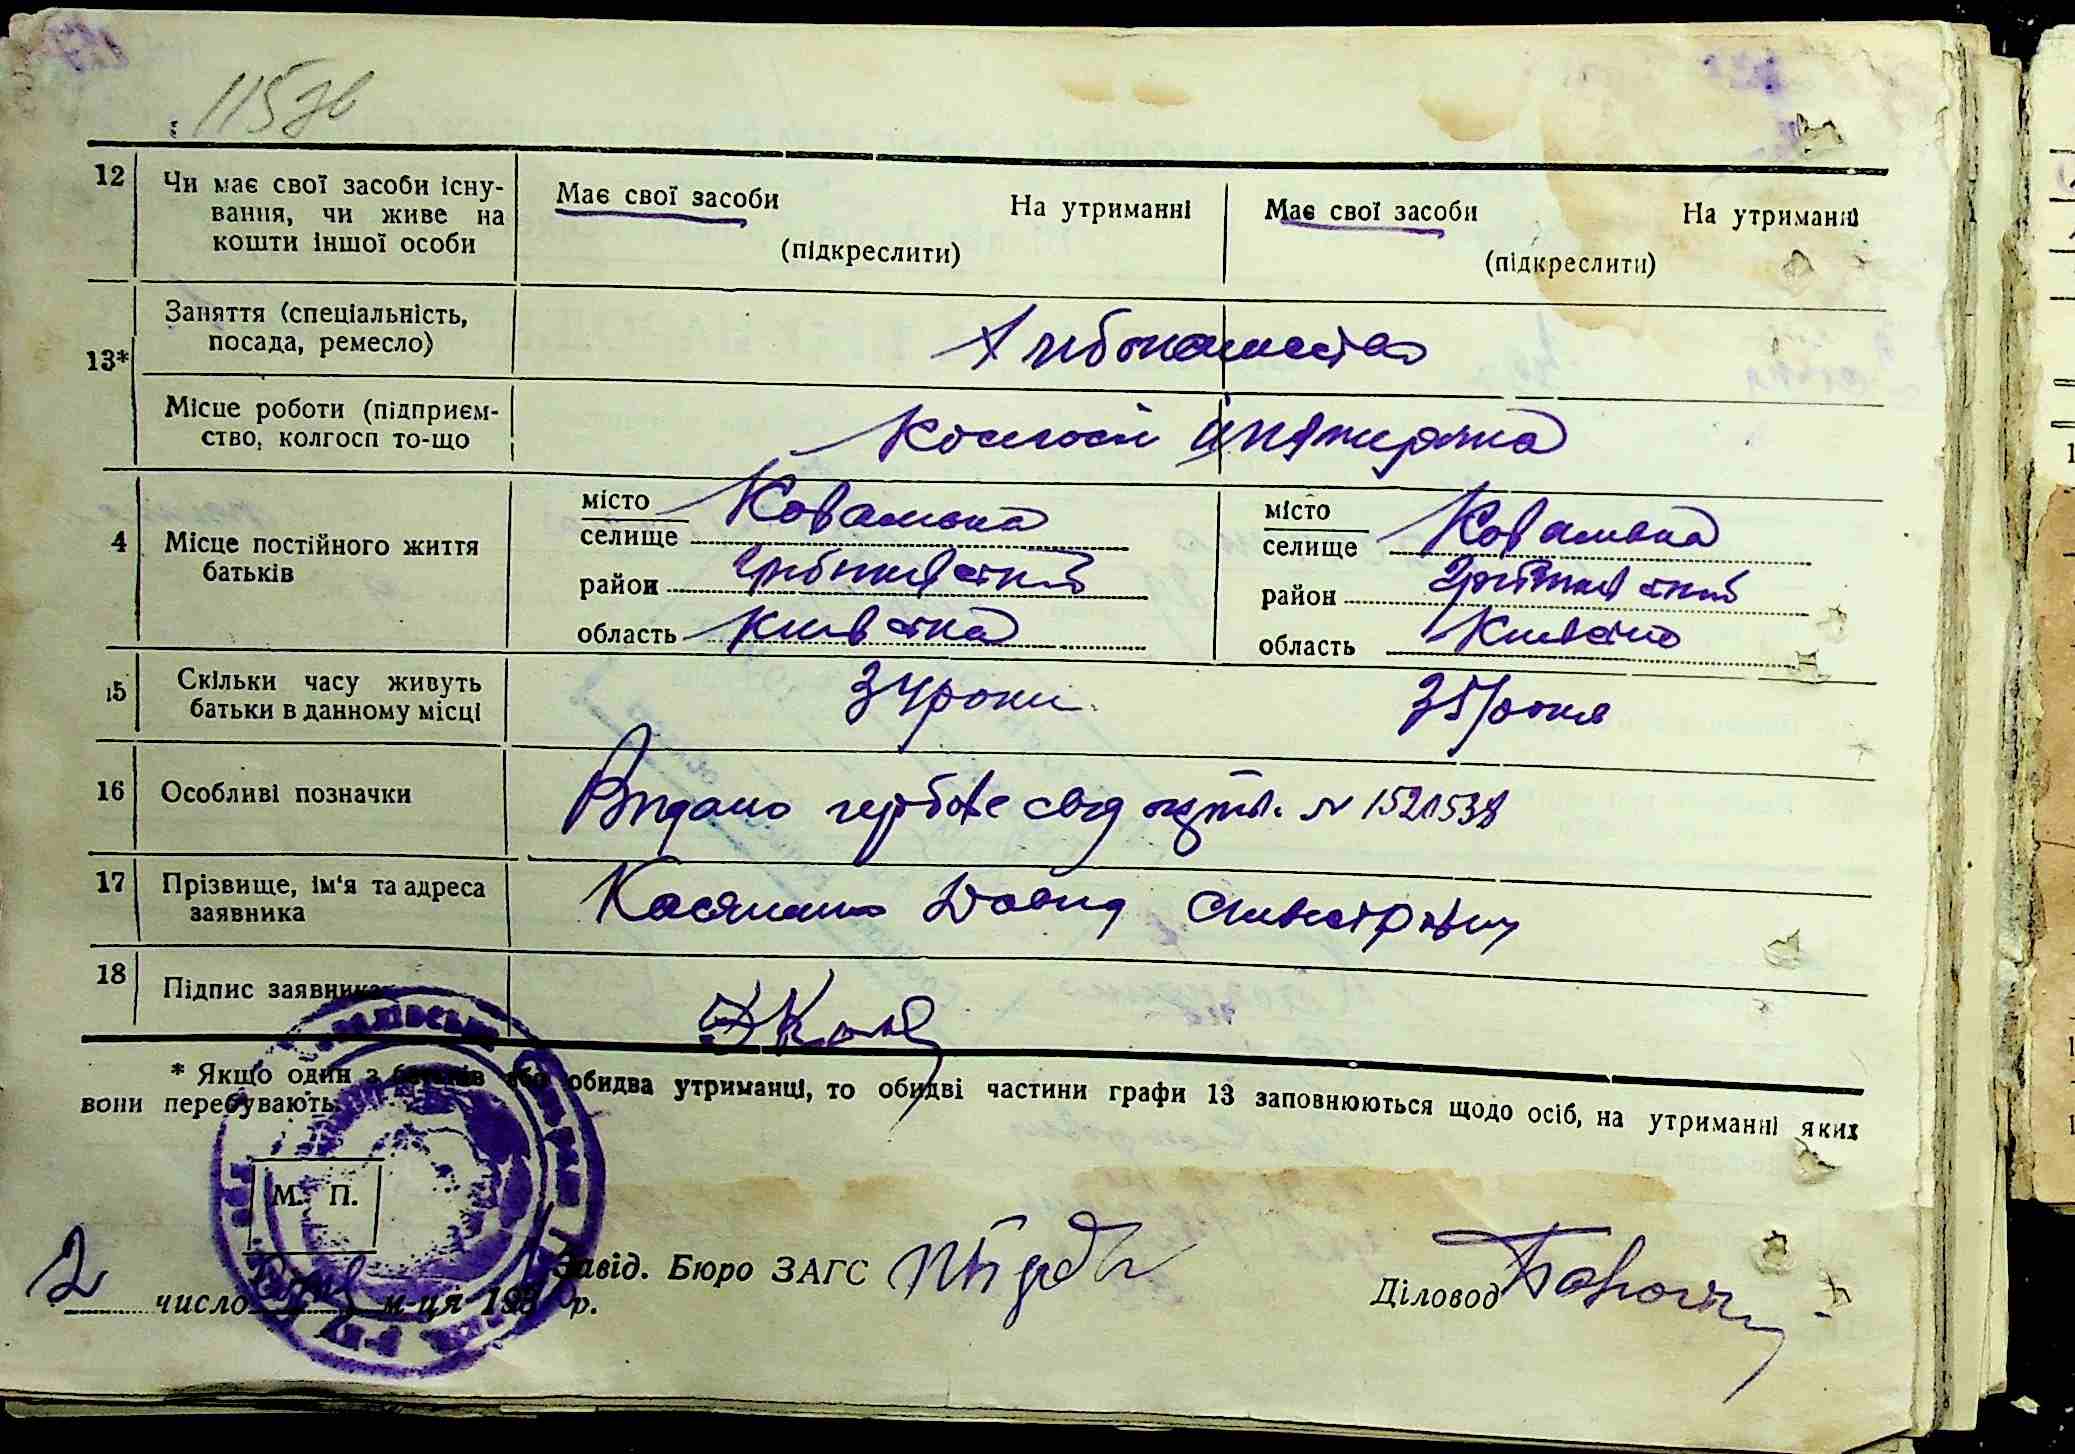 115
12 Чи має свої засоби існу-
вання, чи живе на
кошти іншої особи
Має свої засоби На утриманні
(підкреслити)
Має свої засоби На утриманні
(підкреслити)
13* Заняття (спеціальність,
посада, ремесло)
Місце роботи (підприєм-
ство, колгосп то-що
Колгосп
4 Місце постійного життя
батьків
місто
селище Ковалівка
район
область Київська
місто
селище Ковалівка
район
область Київська
15 Скільки часу живуть
батьки в данному місці
34 роки
35 років
16 Особливі позначки
Видано гербове свідоцтв. № 1521538
17 Прізвище, ім'я та адреса
заявника
Касяненко Давид Сильвестрович
18 Підпис заявника
* Якщо один з батьків або обидва утриманці, то обидві частини графи 13 заповнюються щодо осіб, на утриманні яких
вони перебувають.
М. П.
Завід. Бюро ЗАГС
Діловод
2 число м-ця 193 р.